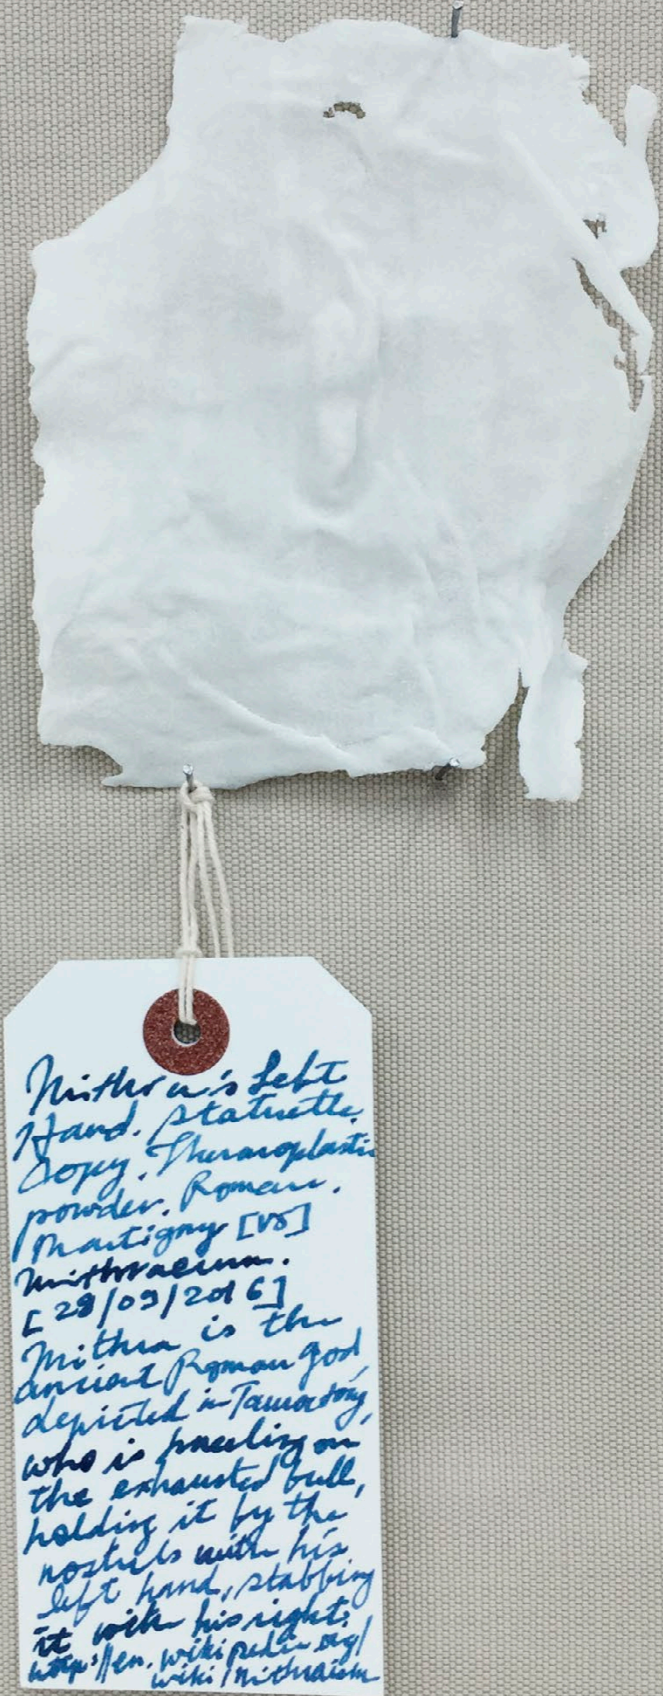 Mithra's Left
Hand. Statuette.
Copy. Thermoplastic
powder. Roman.
Martigny [VS]
Mithraeum.
[28/09/2016]
Mithra is the
ancient Roman god,
depicted in Tauroctony,
who is kneeling on
the exhausted bull,
holding it by the
nostrils with his
left hand, stabbing
it with his right.
http://en.wikipedia.org/
wiki/Mithraism